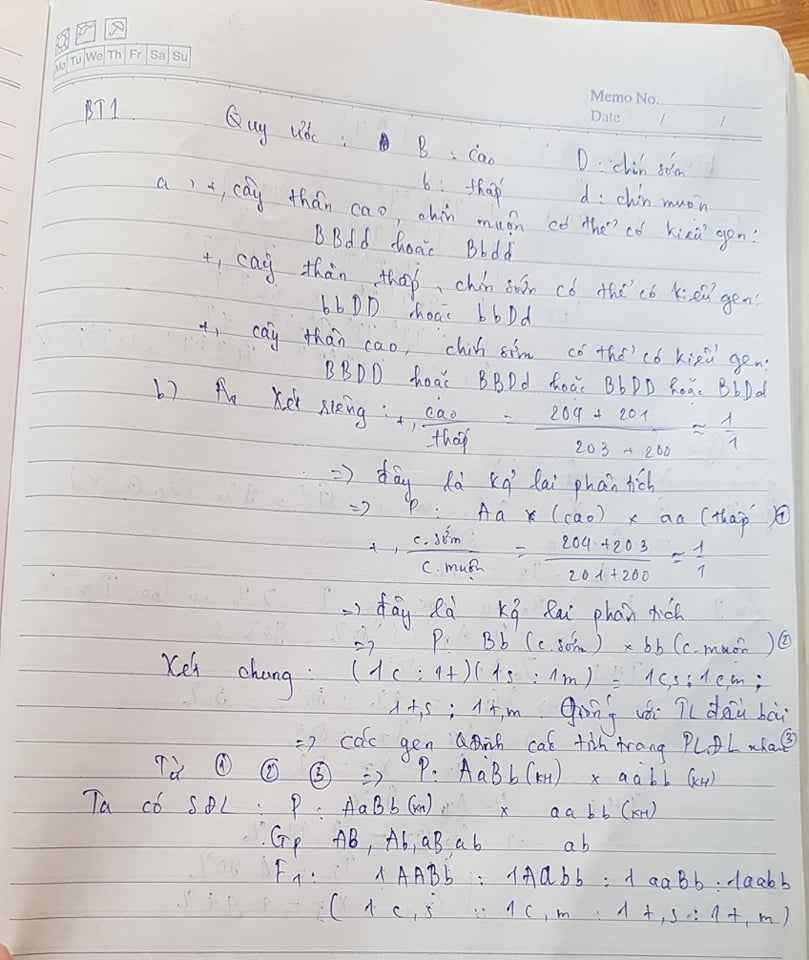 Mo Tu We Th Fr Sa Su
Memo No.
Date / /
BT1. Quy ước : B : cao D : chín sớm
b : thấp d : chín muộn
a, +, cây thân cao, chín muộn có thể có kiểu gen:
BBdd hoặc Bbdd
+, cây thân thấp, chín sớm có thể có kiểu gen:
bbDD hoặc bbDd
+, cây thân cao, chín sớm có thể có kiểu gen:
BBDD hoặc BBDd hoặc BbDD hoặc BbDd
b) Xét riêng : +, cao/thấp = 204 + 201 / 203 + 200 ≈ 1/1
=> đây là kq lai phân tích
=> P: Aa x (cao) x aa (thấp) ①
+, c.sớm/c.muộn = 204 + 203 / 201 + 200 ≈ 1/1
=> đây là kq lai phân tích
=> P: Bb (c.sớm) x bb (c.muộn) ②
Xét chung : (1c : 1t)(1s : 1m) = 1c,s : 1c,m :
1t,s : 1t,m. Giống với TL đầu bài
=> các gen qđịnh các tính trạng PLĐL nhau ③
Từ ① ② ③ => P: AaBb (KH) x aabb (KH)
Ta có SĐL : P : AaBb (KH) x aabb (KH)
Gp AB, Ab, aB, ab ab
F1 : 1 AABb : 1Aabb : 1 aaBb : 1aabb
( 1 c,s : 1c,m : 1t,s : 1t,m )